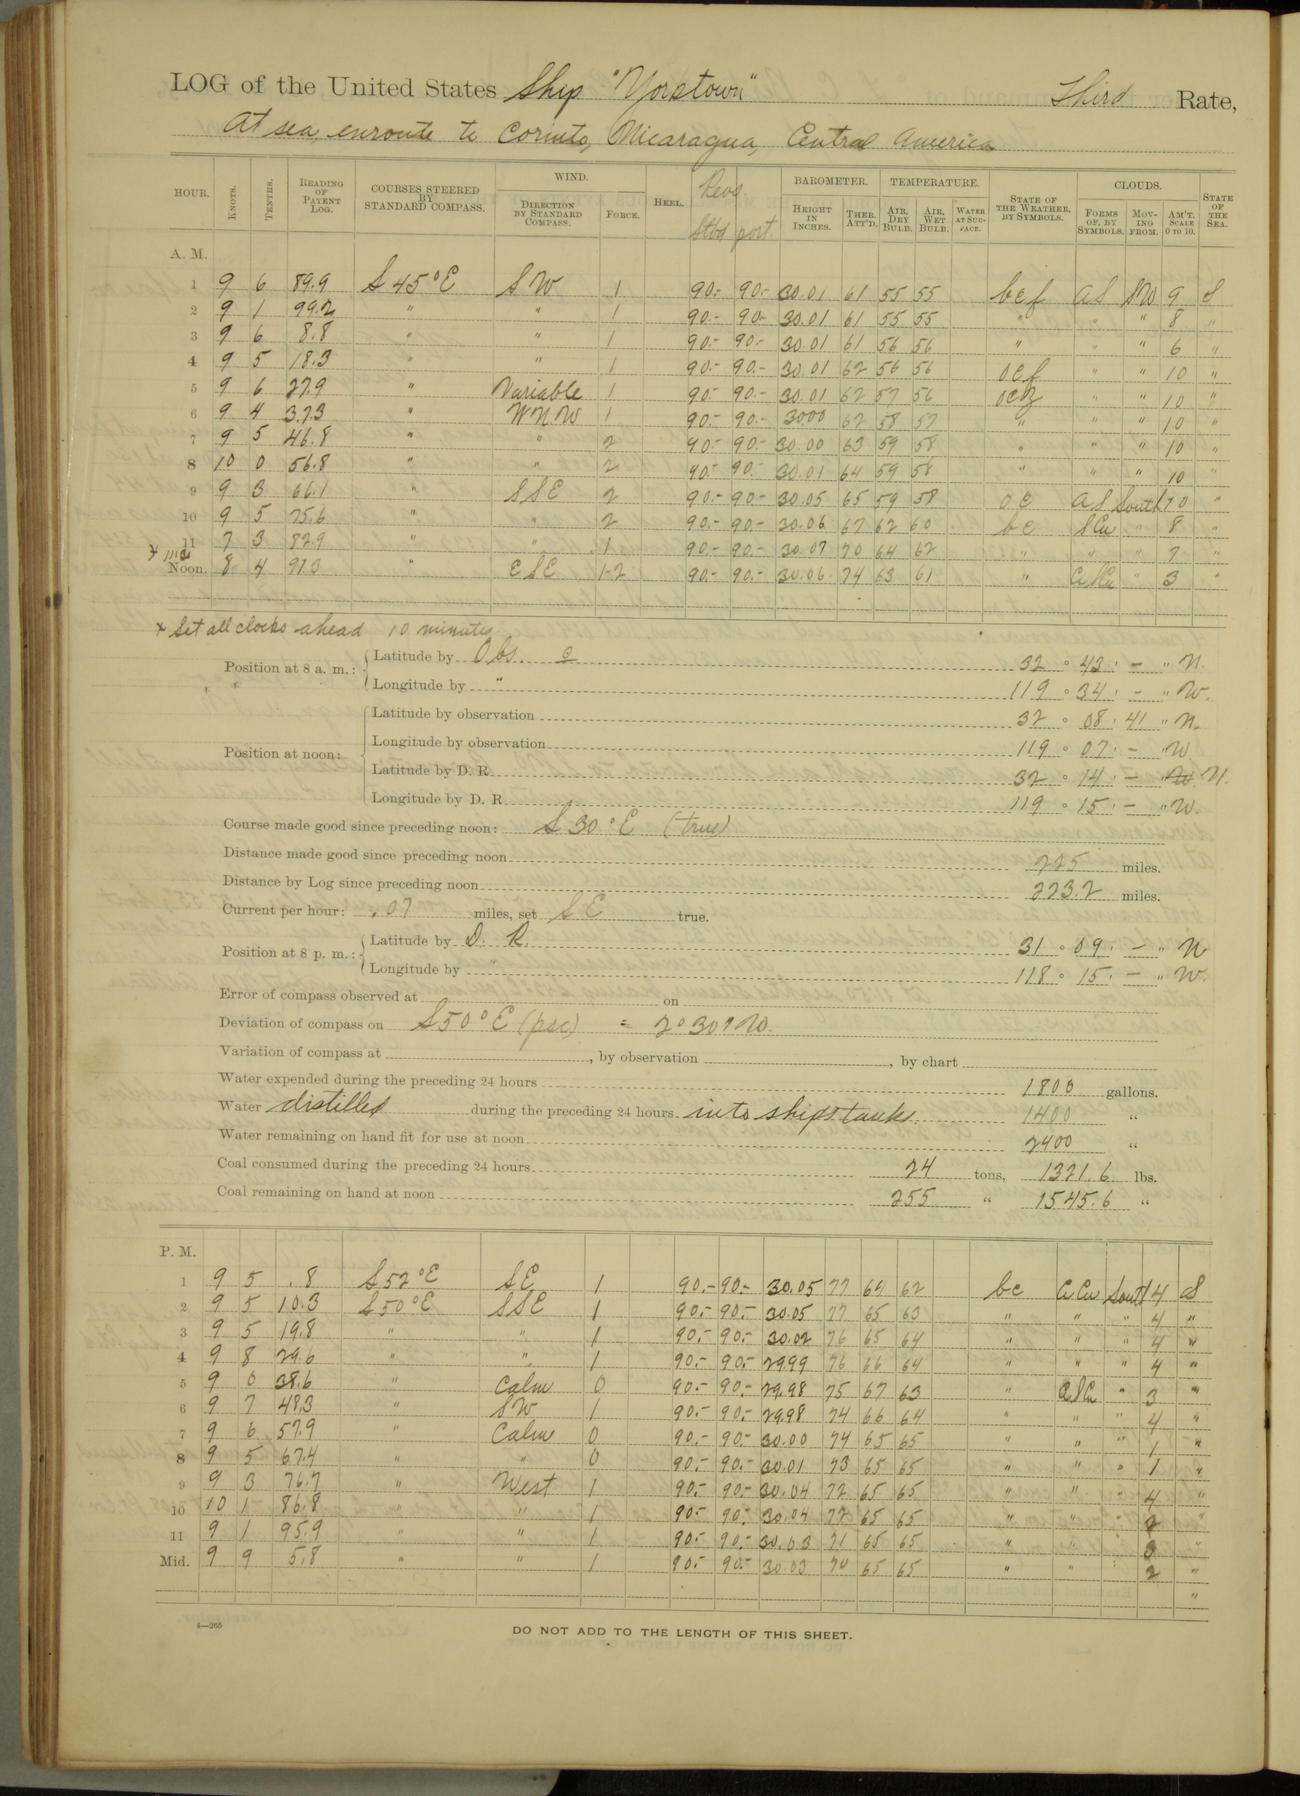 LOG of the United States Ship "Yorktown" Third Rate,
At sea, enroute to Corinto, Nicaragua, Central America
HOUR. KNOTS. TENTHS. READING OF PATENT LOG. COURSES STEERED BY STANDARD COMPASS. WIND. DIRECTION BY STANDARD COMPASS. FORCE. HEEL. Revs. Stbd port. BAROMETER. HEIGHT IN INCHES. THER. ATT'D. TEMPERATURE. AIR, DRY BULB. AIR, WET BULB. WATER AT SURFACE. STATE OF THE WEATHER, BY SYMBOLS. CLOUDS. FORMS OF, BY SYMBOLS. MOVING FROM. AM'T. SCALE 0 TO 10. STATE OF THE SEA.
A. M.
1 9 6 89.9 S 45° E S W 1 90.- 90.- 30.01 61 55 55 bcf a S SW 9 S
2 9 1 99.2 " " 1 90.- 90- 30.01 61 55 55 " " " 8 "
3 9 6 8.8 " " 1 90.- 90.- 30.01 61 56 56 " " " 6 "
4 9 5 18.3 " " 1 90.- 90.- 30.01 62 56 56 ocf " " 10 "
5 9 6 27.9 " Variable 1 90.- 90.- 30.01 62 57 56 ocz " " 10 "
6 9 4 37.3 " WNW 1 90.- 90.- 3000 62 58 57 " " " 10 "
7 9 5 46.8 " " 2 90.- 90- 30.00 63 59 58 " " " 10 "
8 10 0 56.8 " " 2 90.- 90.- 30.01 64 59 58 " " " 10 "
9 9 3 66.1 " SSE 2 90.- 90- 30.05 65 59 58 o c a S South 10 "
10 9 5 75.6 " " 2 90.- 90- 30.06 67 62 60 b c S Cu " 8 "
11 7 3 82.9 " " 1 90.- 90- 30.07 70 64 62 " " " 7 "
Noon. 8 4 91.3 " ESE 1-2 90.- 90.- 30.06 74 63 61 " a S Cu " 3 "
x Set all clocks ahead 10 minutes
Position at 8 a. m.: Latitude by Obs. 32 ° 43 ' - " N.
Longitude by " 119 ° 34 ' - " W.
Position at noon: Latitude by observation 32 ° 08 ' 41 " N.
Longitude by observation 119 ° 07 ' - " W
Latitude by D. R. 32 ° 14 ' - " W. N.
Longitude by D. R. 119 ° 15 ' - " W.
Course made good since preceding noon: S 30° E (true)
Distance made good since preceding noon 225 miles.
Distance by Log since preceding noon 223.2 miles.
Current per hour: .07 miles, set SE true.
Position at 8 p. m.: Latitude by D. R. 31 ° 09 ' - " N
Longitude by " 118 ° 15 ' - " W.
Error of compass observed at on
Deviation of compass on S 50° E (psc) = 2° 30' W.
Variation of compass at , by observation , by chart
Water expended during the preceding 24 hours 1800 gallons.
Water distilled during the preceding 24 hours into ships tanks. 1400 "
Water remaining on hand fit for use at noon 2400 "
Coal consumed during the preceding 24 hours 24 tons, 1321.6 lbs.
Coal remaining on hand at noon 255 " 1545.6 "
P. M.
1 9 5 .8 S 52° E SE 1 90.- 90- 30.05 77 64 62 bc a Cu South 4 S
2 9 5 10.3 S 50° E SSE 1 90.- 90.- 30.05 77 65 63 " " " 4 "
3 9 5 19.8 " " 1 90.- 90.- 30.02 76 65 64 " " " 4 "
4 9 8 29.6 " " 1 90.- 90.- 29.99 76 66 64 " " " 4 "
5 9 0 38.6 " Calm 0 90.- 90.- 29.98 75 67 63 " a S Cu " 3 "
6 9 7 48.3 " SW 1 90.- 90.- 29.98 74 66 64 " " " 4 "
7 9 6 57.9 " Calm 0 90.- 90- 30.00 74 65 65 " " " 1 "
8 9 5 67.4 " " 0 90.- 90.- 30.01 73 65 65 " " " 1 "
9 9 3 76.7 " West 1 90.- 90.- 30.04 72 65 65 " " " 4 "
10 10 1 86.8 " " 1 90.- 90.- 30.04 72 65 65 " " " 2 "
11 9 1 95.9 " " 1 90.- 90.- 30.03 71 65 65 " " " 3 "
Mid. 9 9 5.8 " " 1 90.- 90.- 30.03 70 65 65 " " " 2 "
"
4—265
DO NOT ADD TO THE LENGTH OF THIS SHEET.